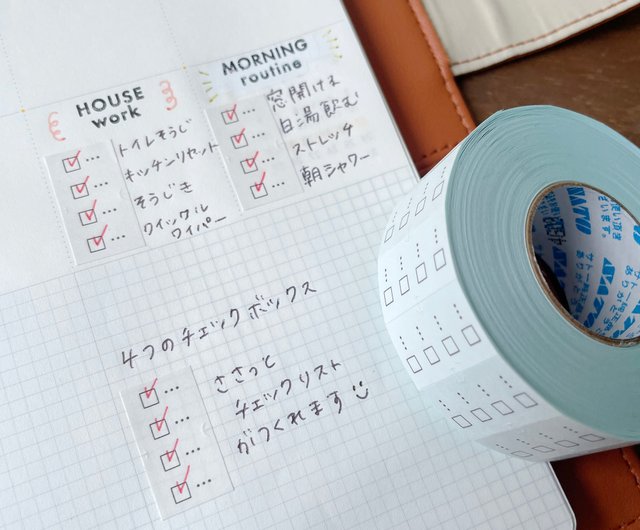 HOUSE
work
トイレそうじ
キッチンリセット
そうじき
クイックル
ワイパー
MORNING
routine
窓開ける
白湯飲む
ストレッチ
朝シャワー
4つのチェックボックス
ささっと
チェックリスト
がつくれます
SATO